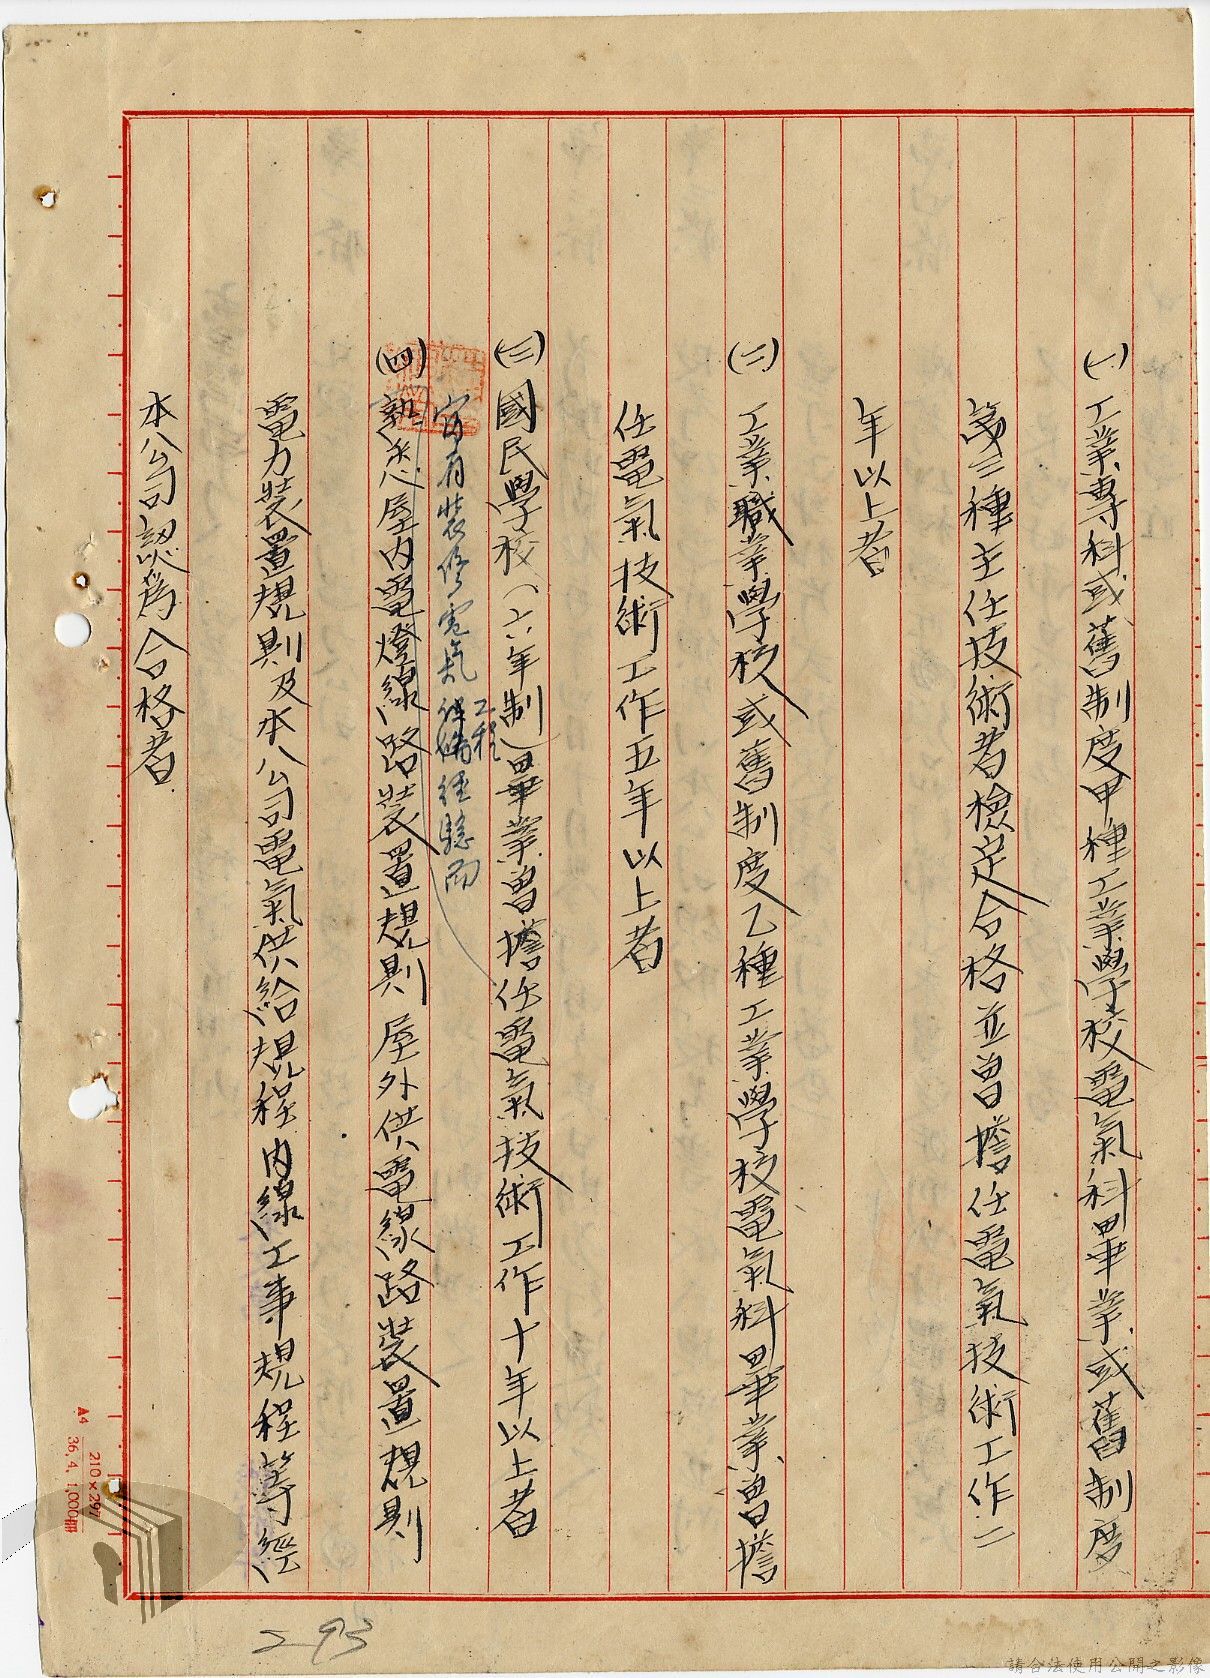 (一)工業專科或舊制度甲種工業學校電氣科畢業或舊制度
第三種主任技術者檢定合格並曾擔任電氣技術工作二
年以上者
(二)工業職業學校或舊制度乙種工業學校電氣科畢業曾擔
任電氣技術工作五年以上者
(三)國民學校(六年制)畢業曾擔任電氣技術工作十年以上者
富有裝修電氣工程 經驗而
(四)熟悉屋內電燈線路裝置規則屋外供電線路裝置規則
電力裝置規則及本公司電氣供給規程內線工事規程等經
本公司認為合格者
A4 210×297
36. 4. 1,000冊
293
請合法使用公開之影像